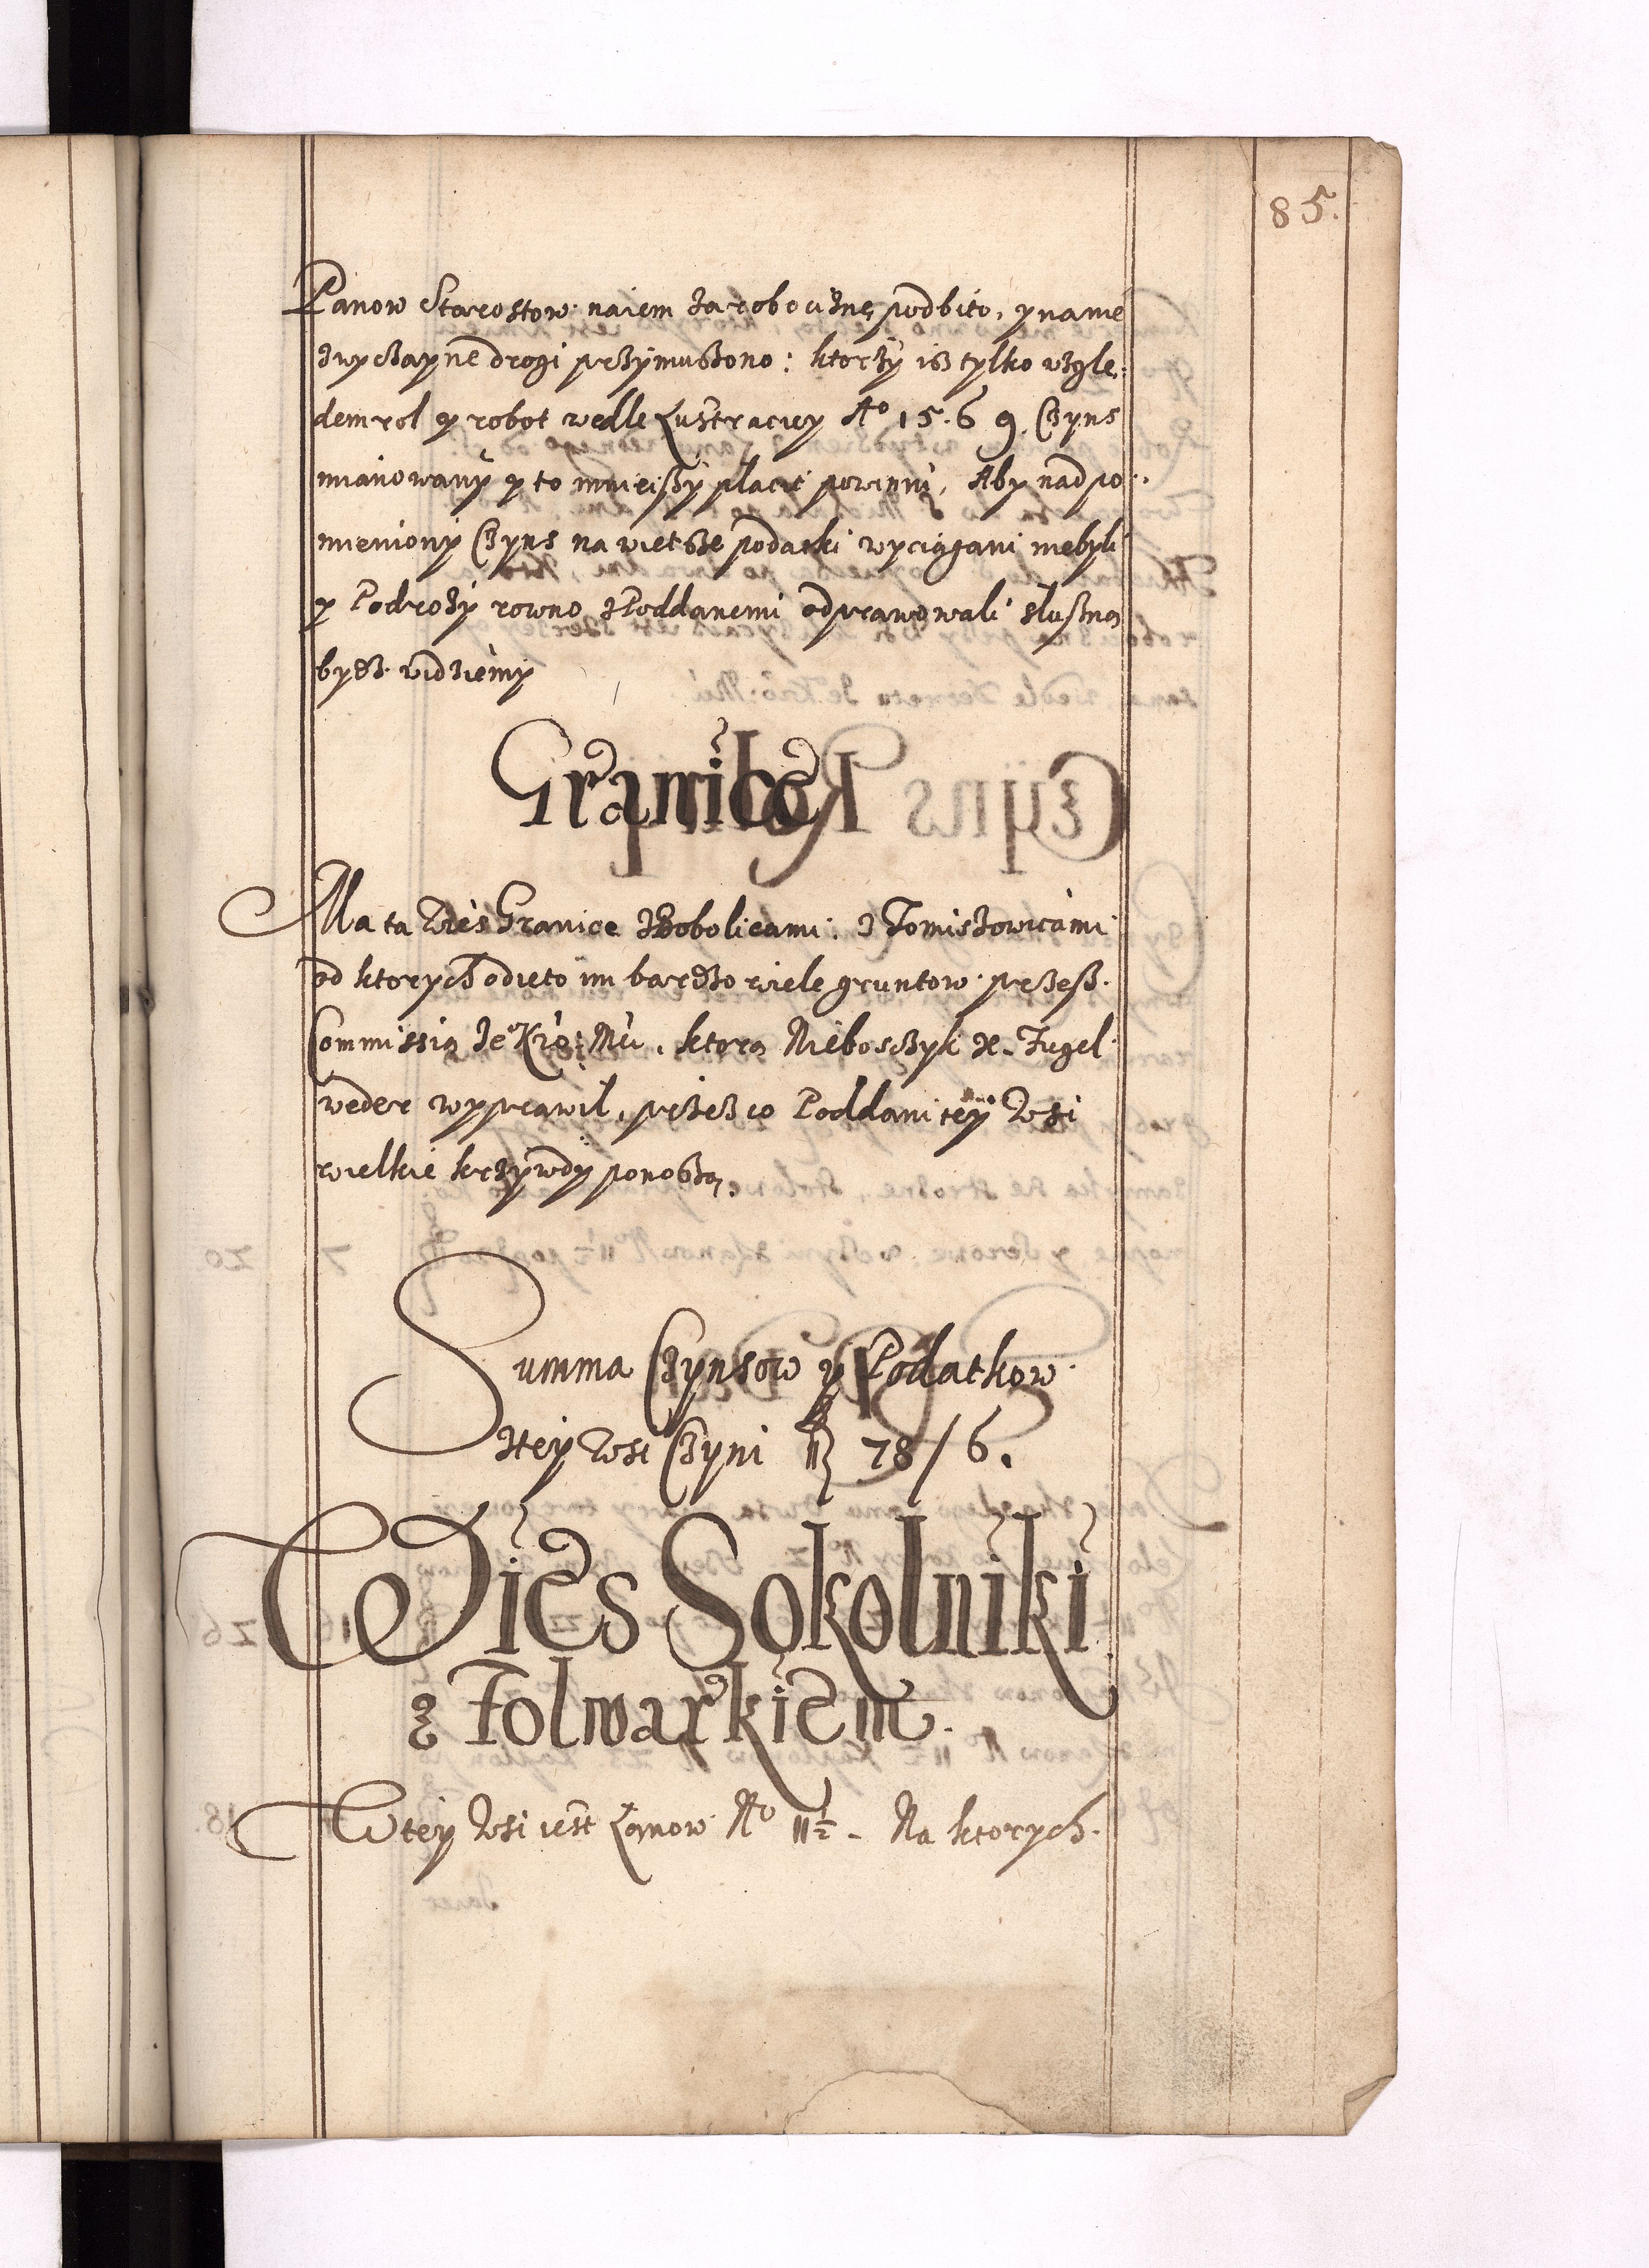 85.
Panow Starostow naiem za robociznę podbito, y na nie
zwyczayne drogi przymuszono: ktorzy isz tylko wzglę-
dem rol y robot wedle Lustraciey Aº 1569. Czyns
mianowany y to mnieiszy płacic powinni, Aby nad po-
mieniony Czyns na wietsze podatki wyciągani niebyli
y Podrozy rowno z Poddanemi odprawowali słuszną
bydz widziemy
Granice
Ma ta Wies Granice z Bobolicami. z Tomiszowicami
od ktorych odięto im bardzo wiele gruntow przesz
Commissią Jeº Kro: Mci. ktorą Nieboszczyk X. Fugel
weder wyprawił, przez co Poddani tey Wsi
wielkie krzywdy ponoszą.
Summa Czynsow y Podatkow
z tey Wsi Czyni fl 78/6.
Wies Sokolniki
z Folwarkiem.
W tey Wsi iest Łanow Nº 11½. Na ktorych.